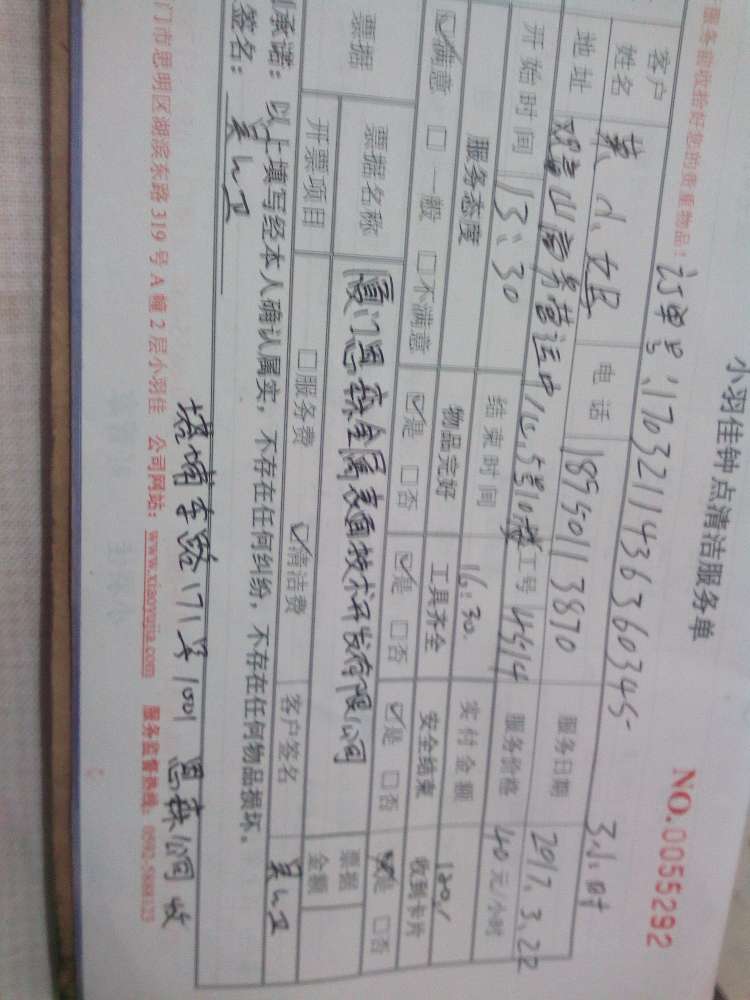 小羽佳钟点清洁服务单
NO.0055292
服务前收拾好您的贵重物品！ 订单号：1703211436360345 3小时
客户姓名 黄小姐 电话 18950113870 服务日期 2017.3.22
地址 观音山商务营运中心5号10楼 工号 4514 服务价格 40元/小时
开始时间 13:30 结束时间 16:30 实付金额 120
服务态度 物品完好 工具齐全 安全结束 收到卡片
☑满意 □一般 □不满意 ☑是 □否 ☑是 □否 ☑是 □否 ☑是 □否
票据 票据名称 厦门恩森金属表面技术开发有限公司 票据金额
开票项目 □服务费 ☑清洁费 客户签名
承诺：以上填写经本人确认属实，不存在任何纠纷，不存在任何物品损坏。
签名：
塔埔东路171号1001 恩森公司 收
门市思明区湖滨东路319号A幢2层小羽佳 公司网站：www.xiaoyujia.com 服务监督热线：0592-5888123